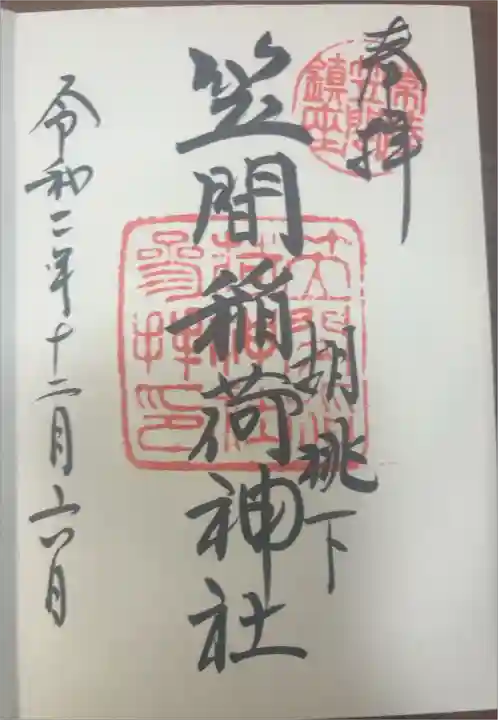 奉拝
常陸
笠間
鎮座
胡桃下
笠間稲荷神社
笠間稲
荷神社
参拝印
令和二年十二月六日